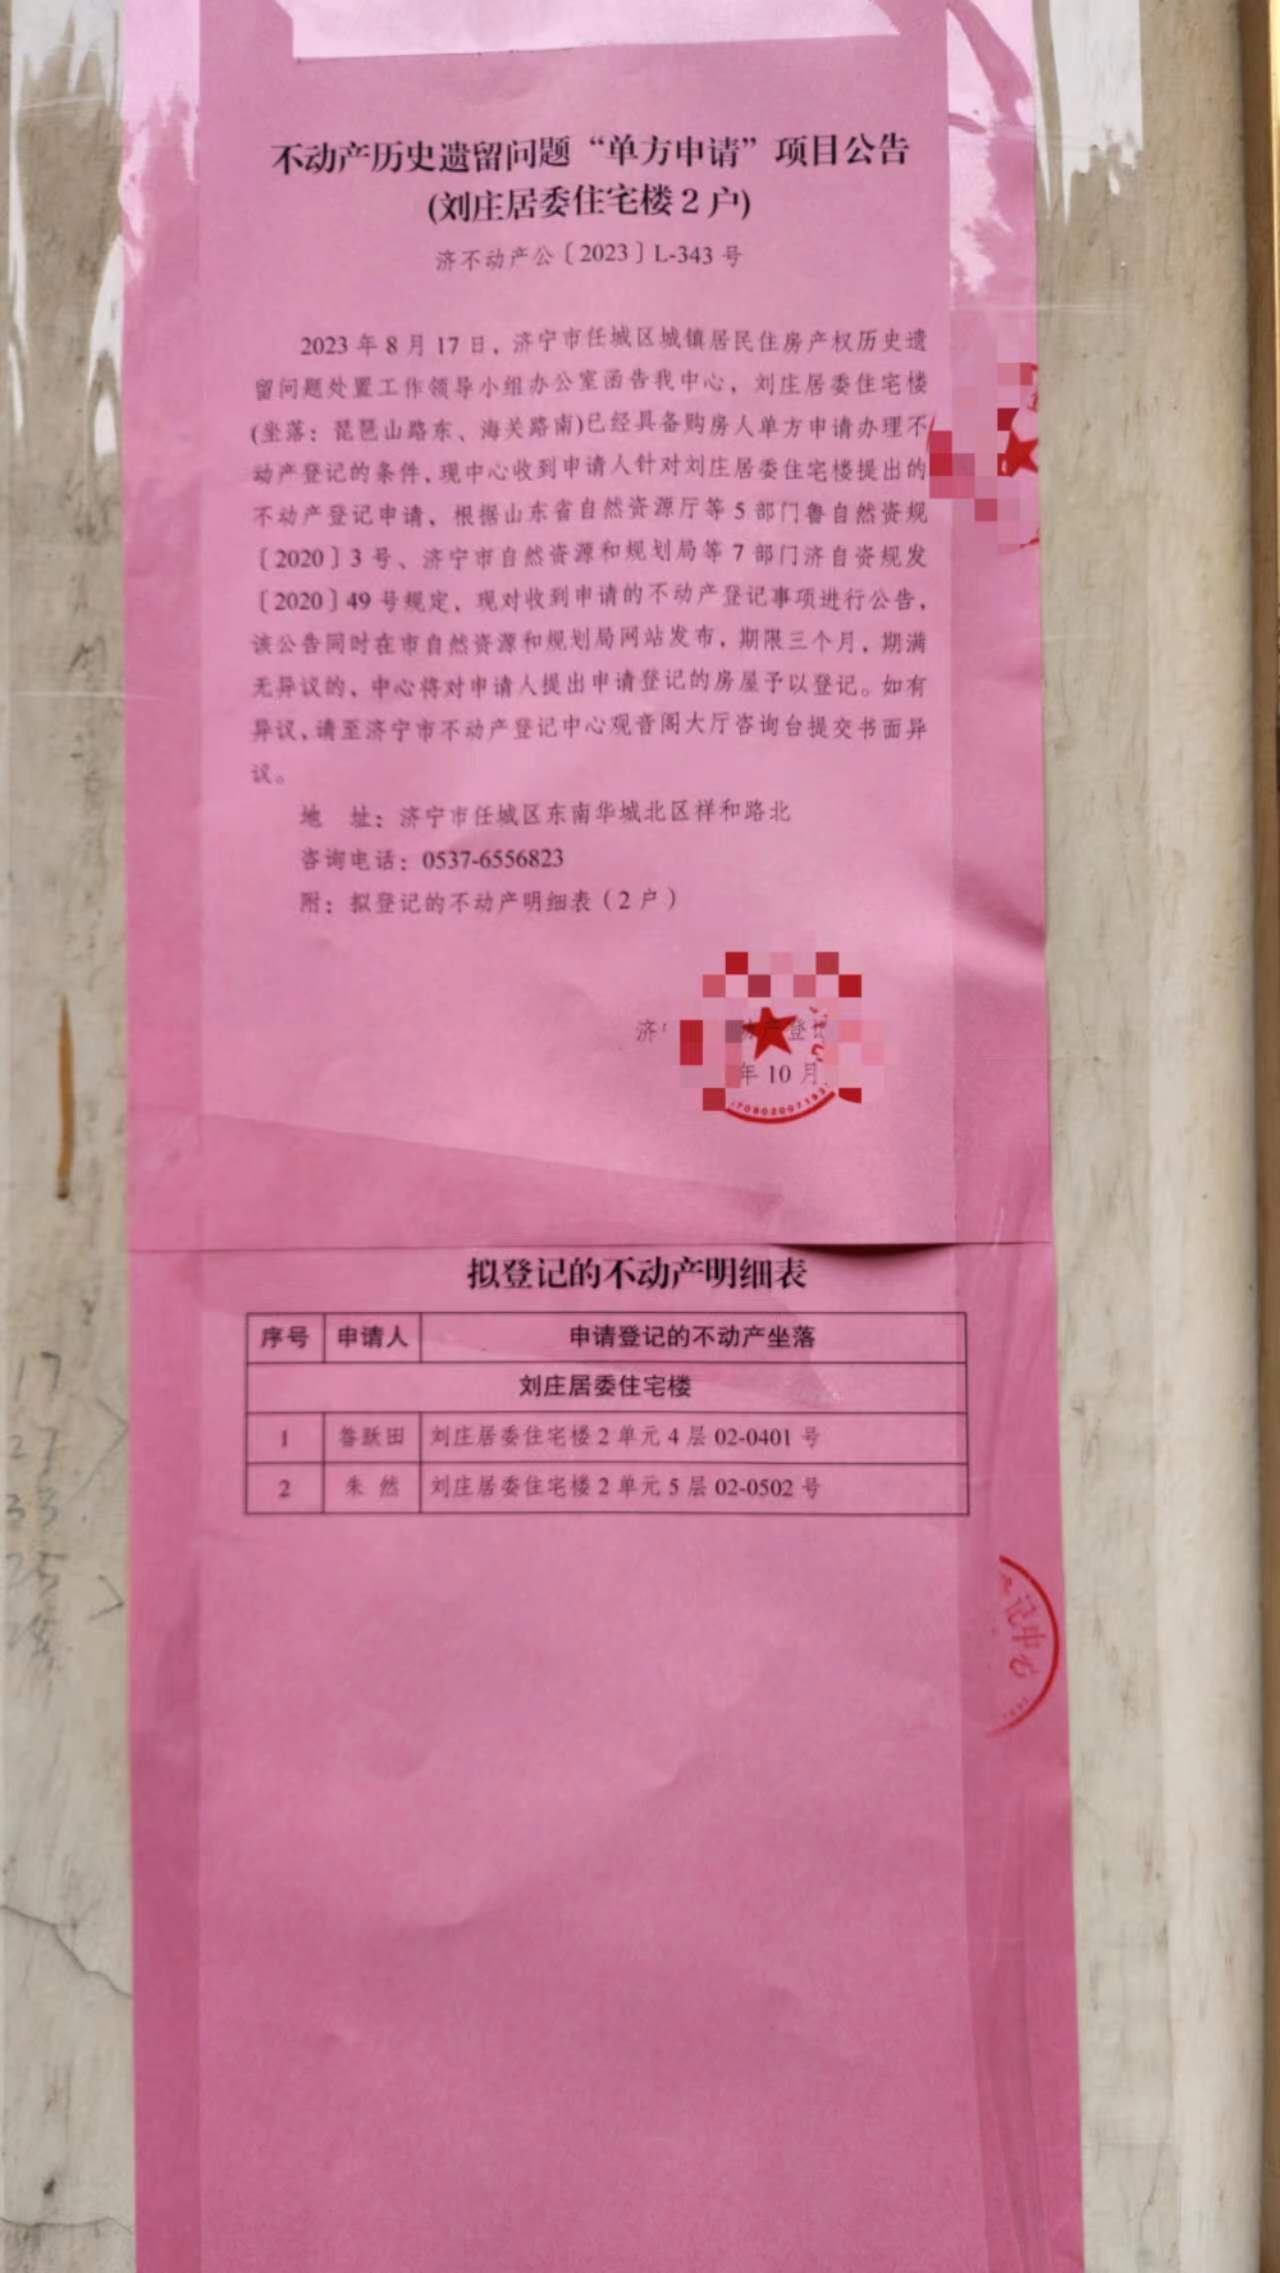 不动产历史遗留问题“单方申请”项目公告
(刘庄居委住宅楼2户)
济不动产公〔2023〕L-343号
2023年8月17日，济宁市任城区城镇居民住房产权历史遗
留问题处置工作领导小组办公室函告我中心，刘庄居委住宅楼
(坐落：琵琶山路东、海关路南)已经具备购房人单方申请办理不
动产登记的条件，现中心收到申请人针对刘庄居委住宅楼提出的
不动产登记申请，根据山东省自然资源厅等5部门鲁自然资规
〔2020〕3号、济宁市自然资源和规划局等7部门济自资规发
〔2020〕49号规定，现对收到申请的不动产登记事项进行公告，
该公告同时在市自然资源和规划局网站发布，期限三个月，期满
无异议的，中心将对申请人提出申请登记的房屋予以登记。如有
异议，请至济宁市不动产登记中心观音阁大厅咨询台提交书面异
议。
地 址：济宁市任城区东南华城北区祥和路北
咨询电话：0537-6556823
附：拟登记的不动产明细表（2户）
济 产登
年10月
拟登记的不动产明细表
序号 申请人 申请登记的不动产坐落
刘庄居委住宅楼
1 昝跃田 刘庄居委住宅楼2单元4层02-0401号
2 朱 然 刘庄居委住宅楼2单元5层02-0502号
记中心
17